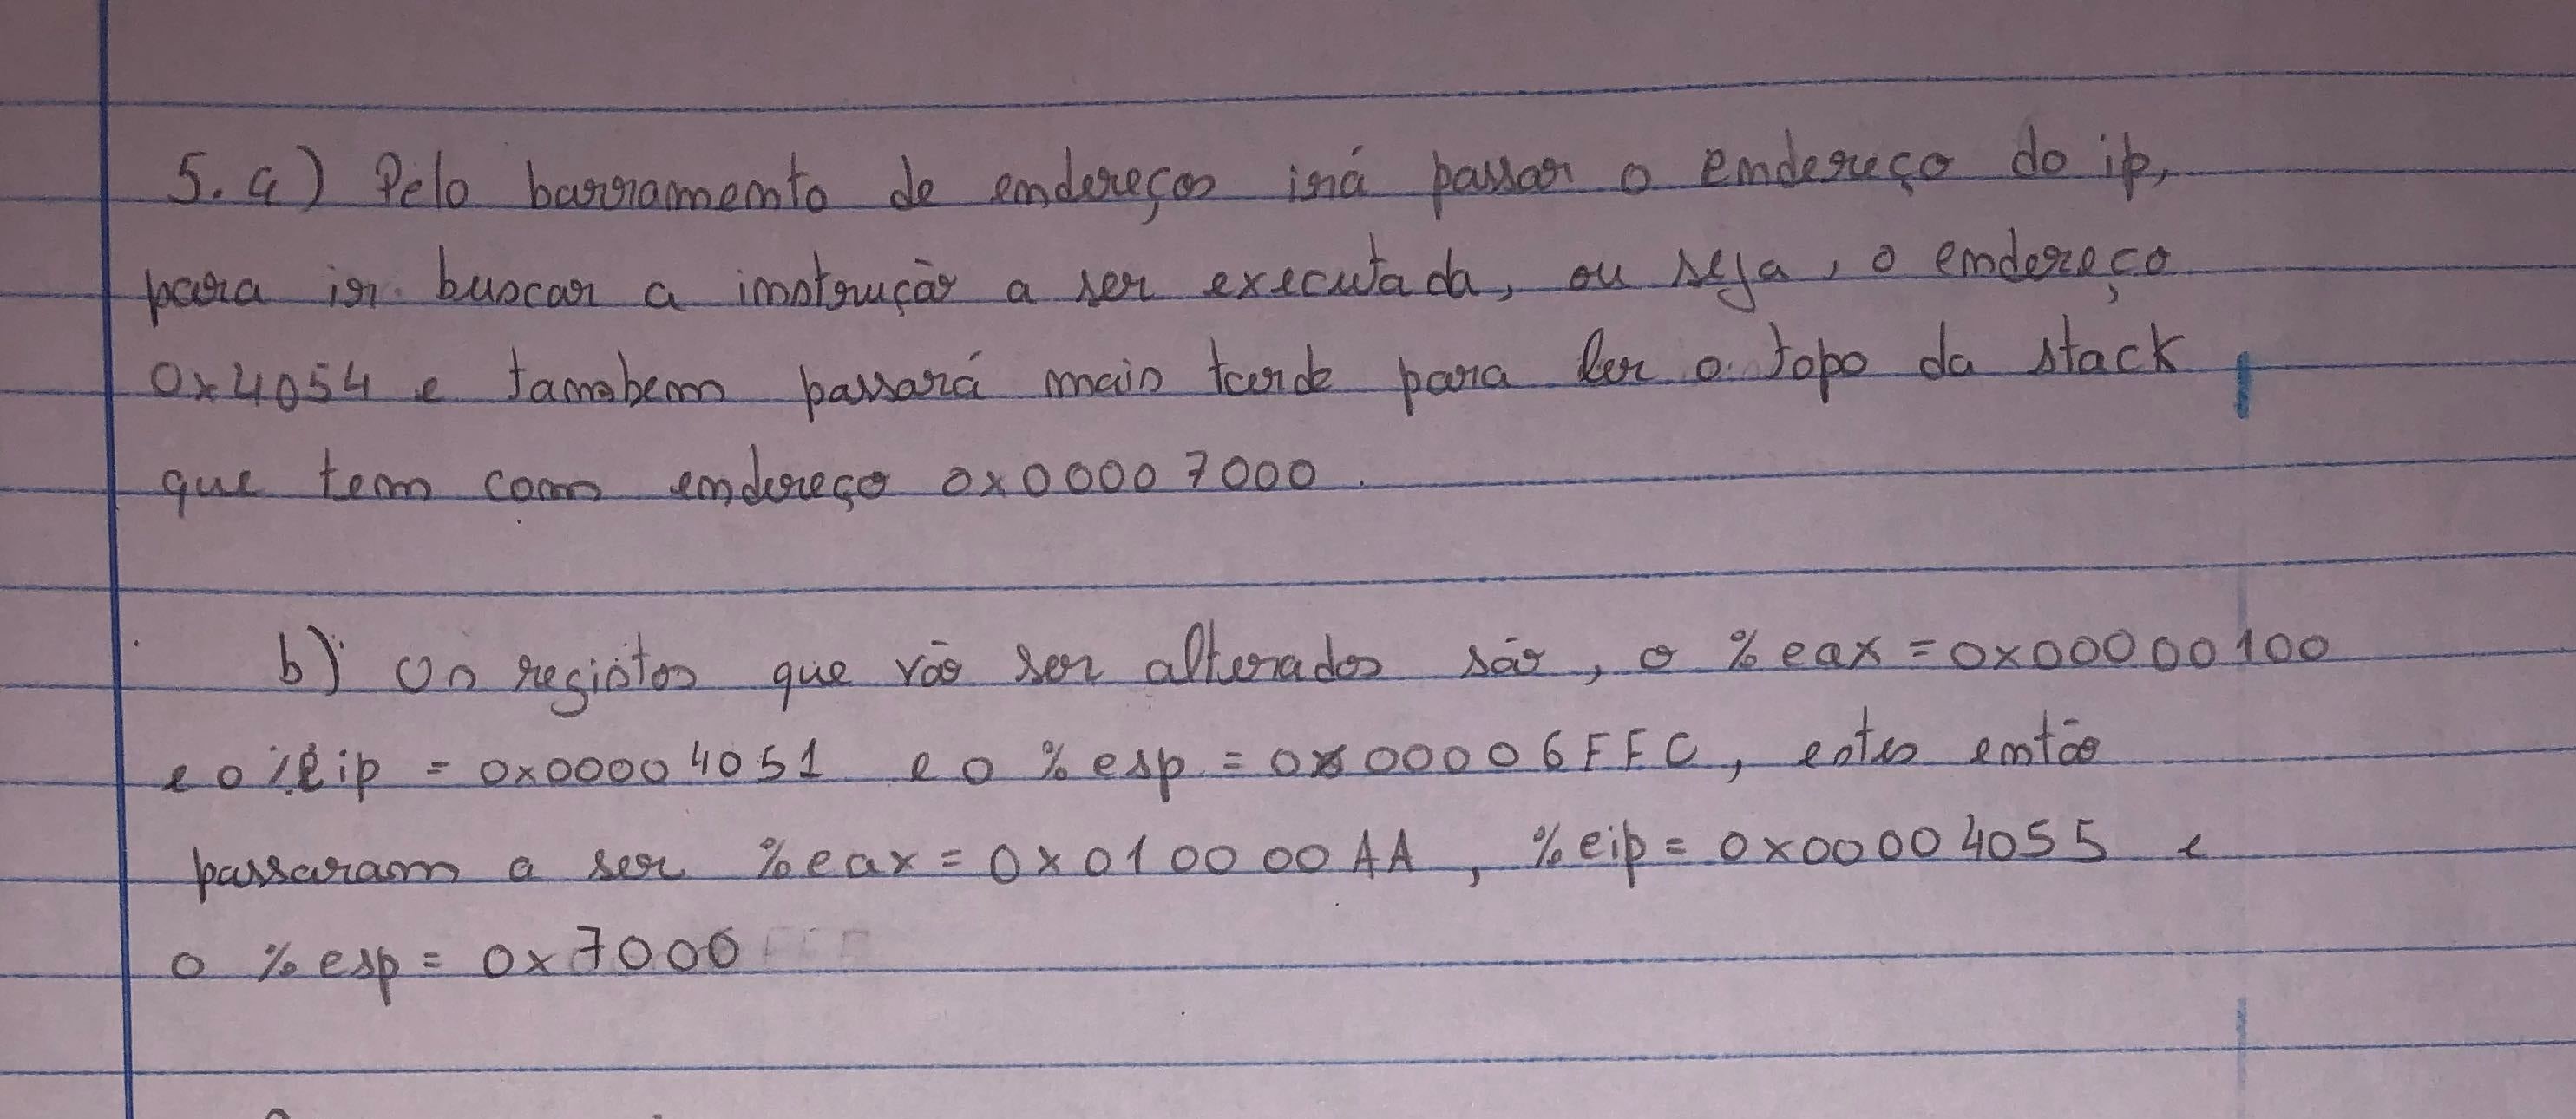 5. a) Pelo barramento de endereços irá passar o endereço do ip,
para ir buscar a instrução a ser executada, ou seja, o endereço
0x4054 e tambem passará mais tarde para ler o topo da stack
que tem com endereço 0x00007000.
b) Os registos que vão ser alterados são, o %eax = 0x00000100
e o %eip = 0x00004051 e o %esp = 0x00006FFC, estes então
passaram a ser %eax = 0x010000AA, %eip = 0x00004055 e
o %esp = 0x7000